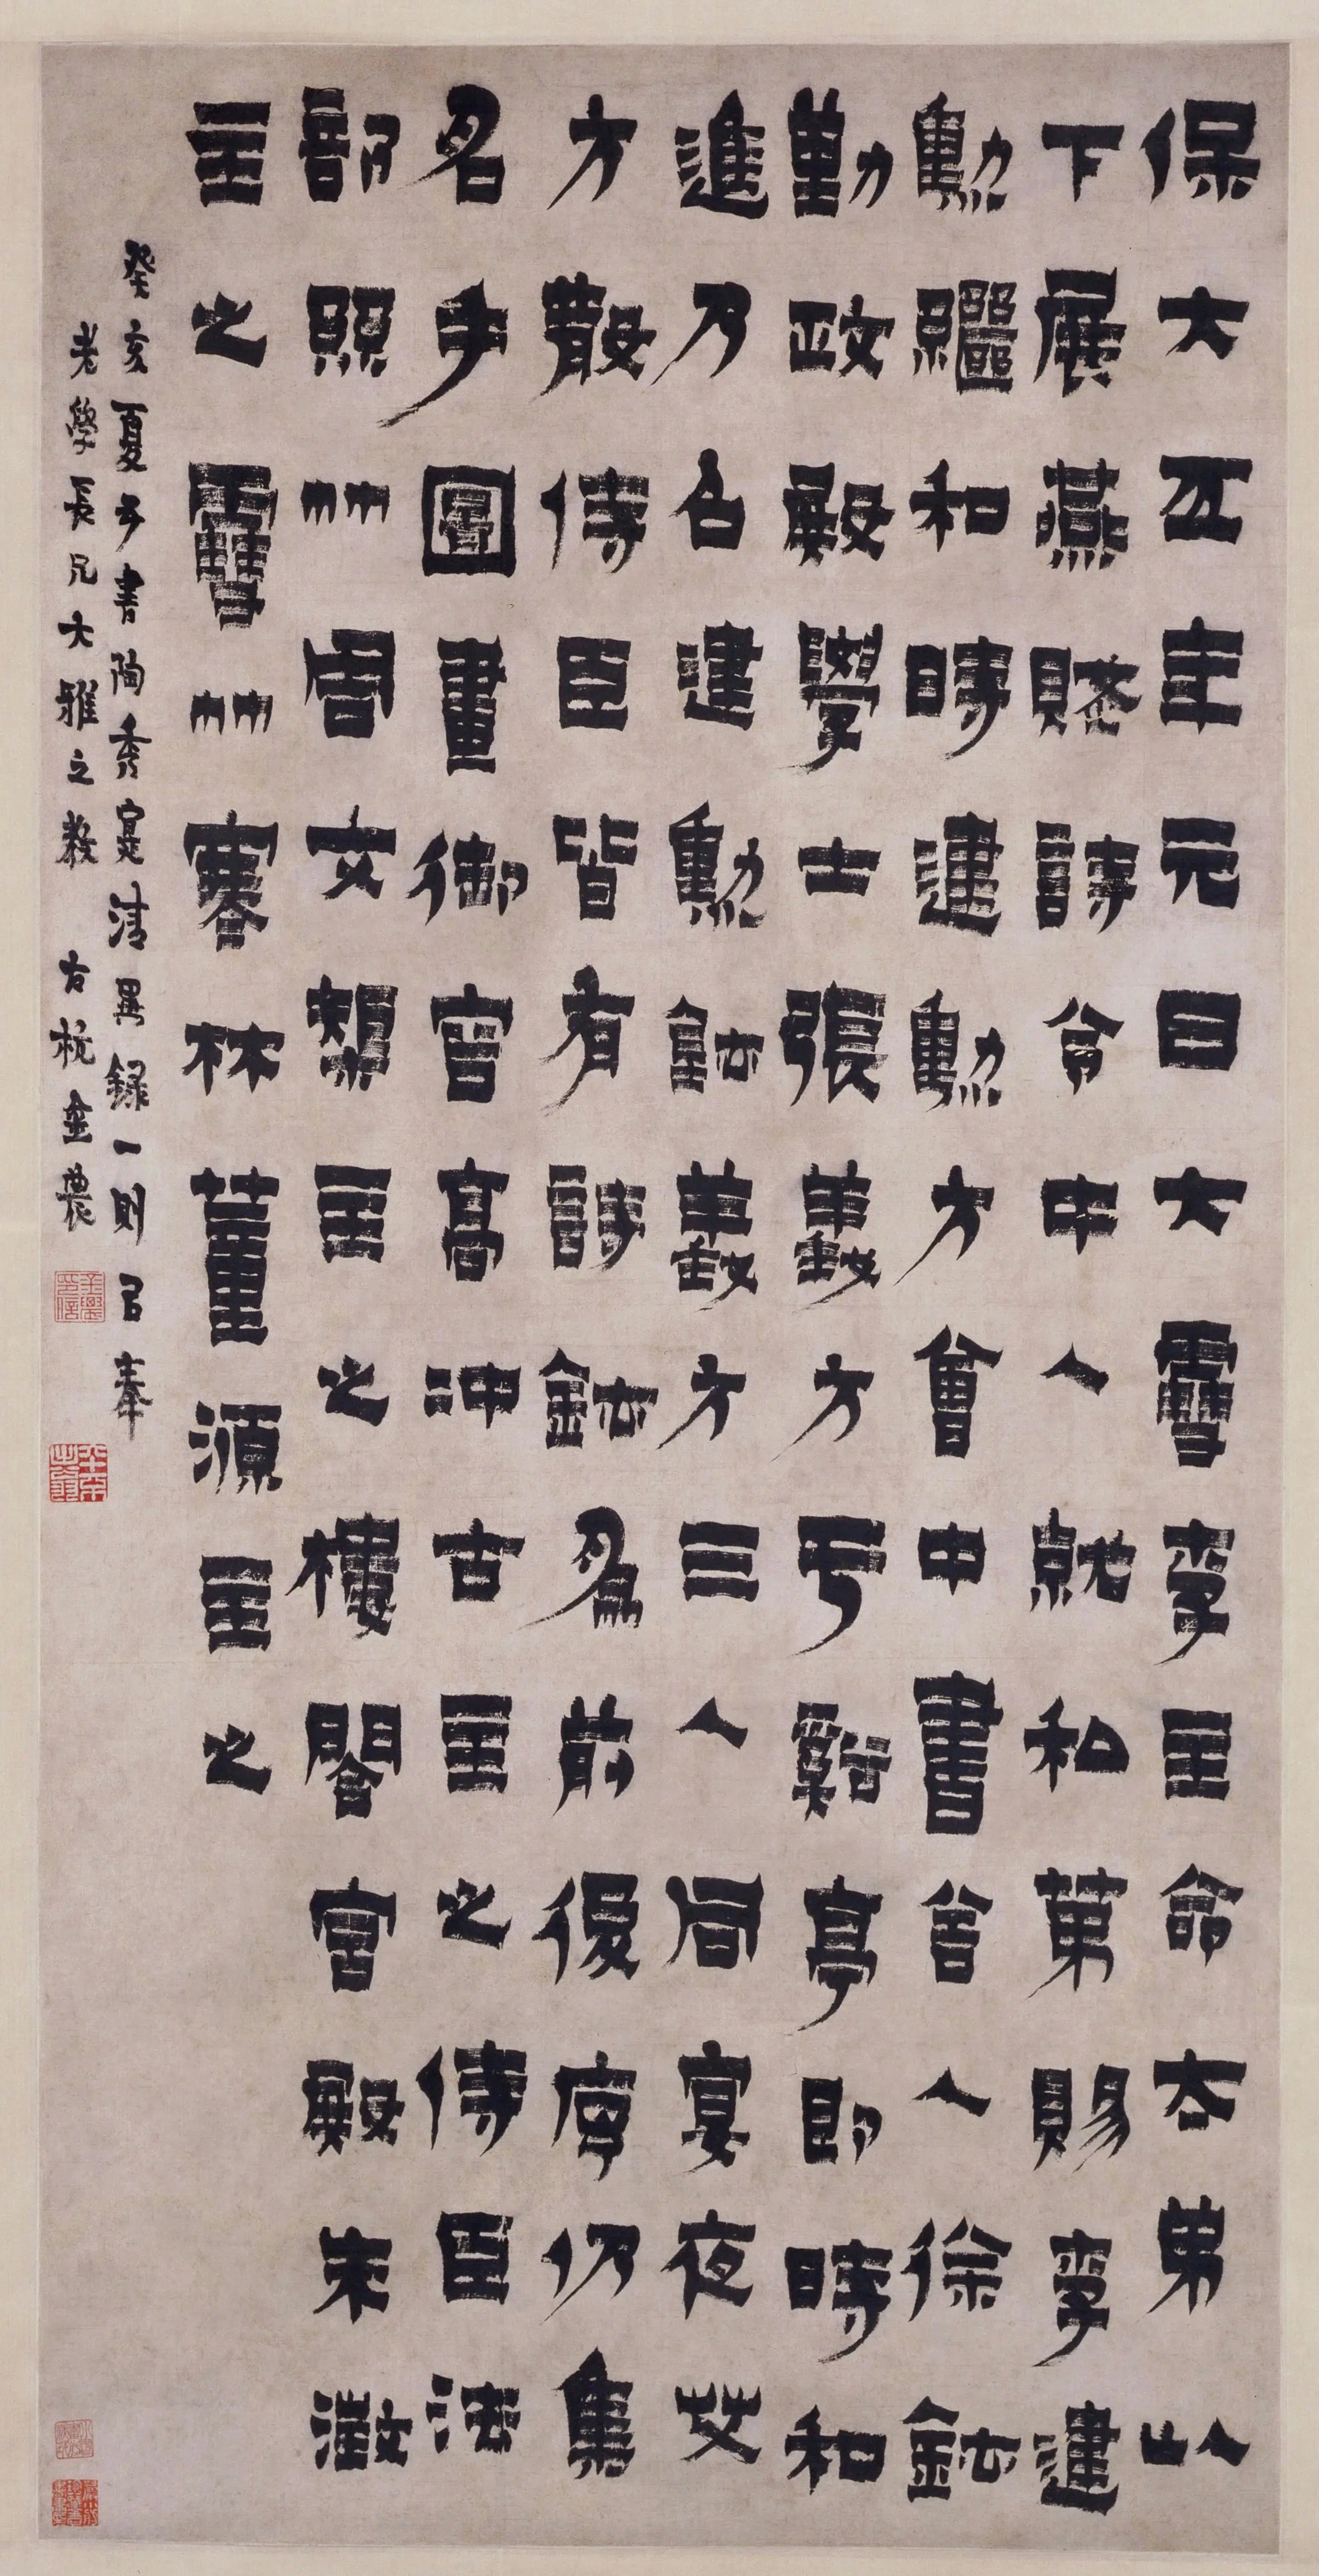 保大五年元日大雪李主命太弟以
下展燕賦詩令中人就私第賜李建
勳繼和時建勳方會中書舍人徐鉉
勤政殿學士張義方于谿亭即時和
進乃召建勳鉉義方三人同宴夜艾
方散侍臣皆有詩鉉為前後序仍集
名手圖畫御容高沖古主之侍臣法
部竹周文榘主之樓閣宮殿朱澂
主之雪竹寒林董源主之
癸亥夏予書陶秀寔清異録一則㠯奉
老學長兄大雅之教 古杭金農